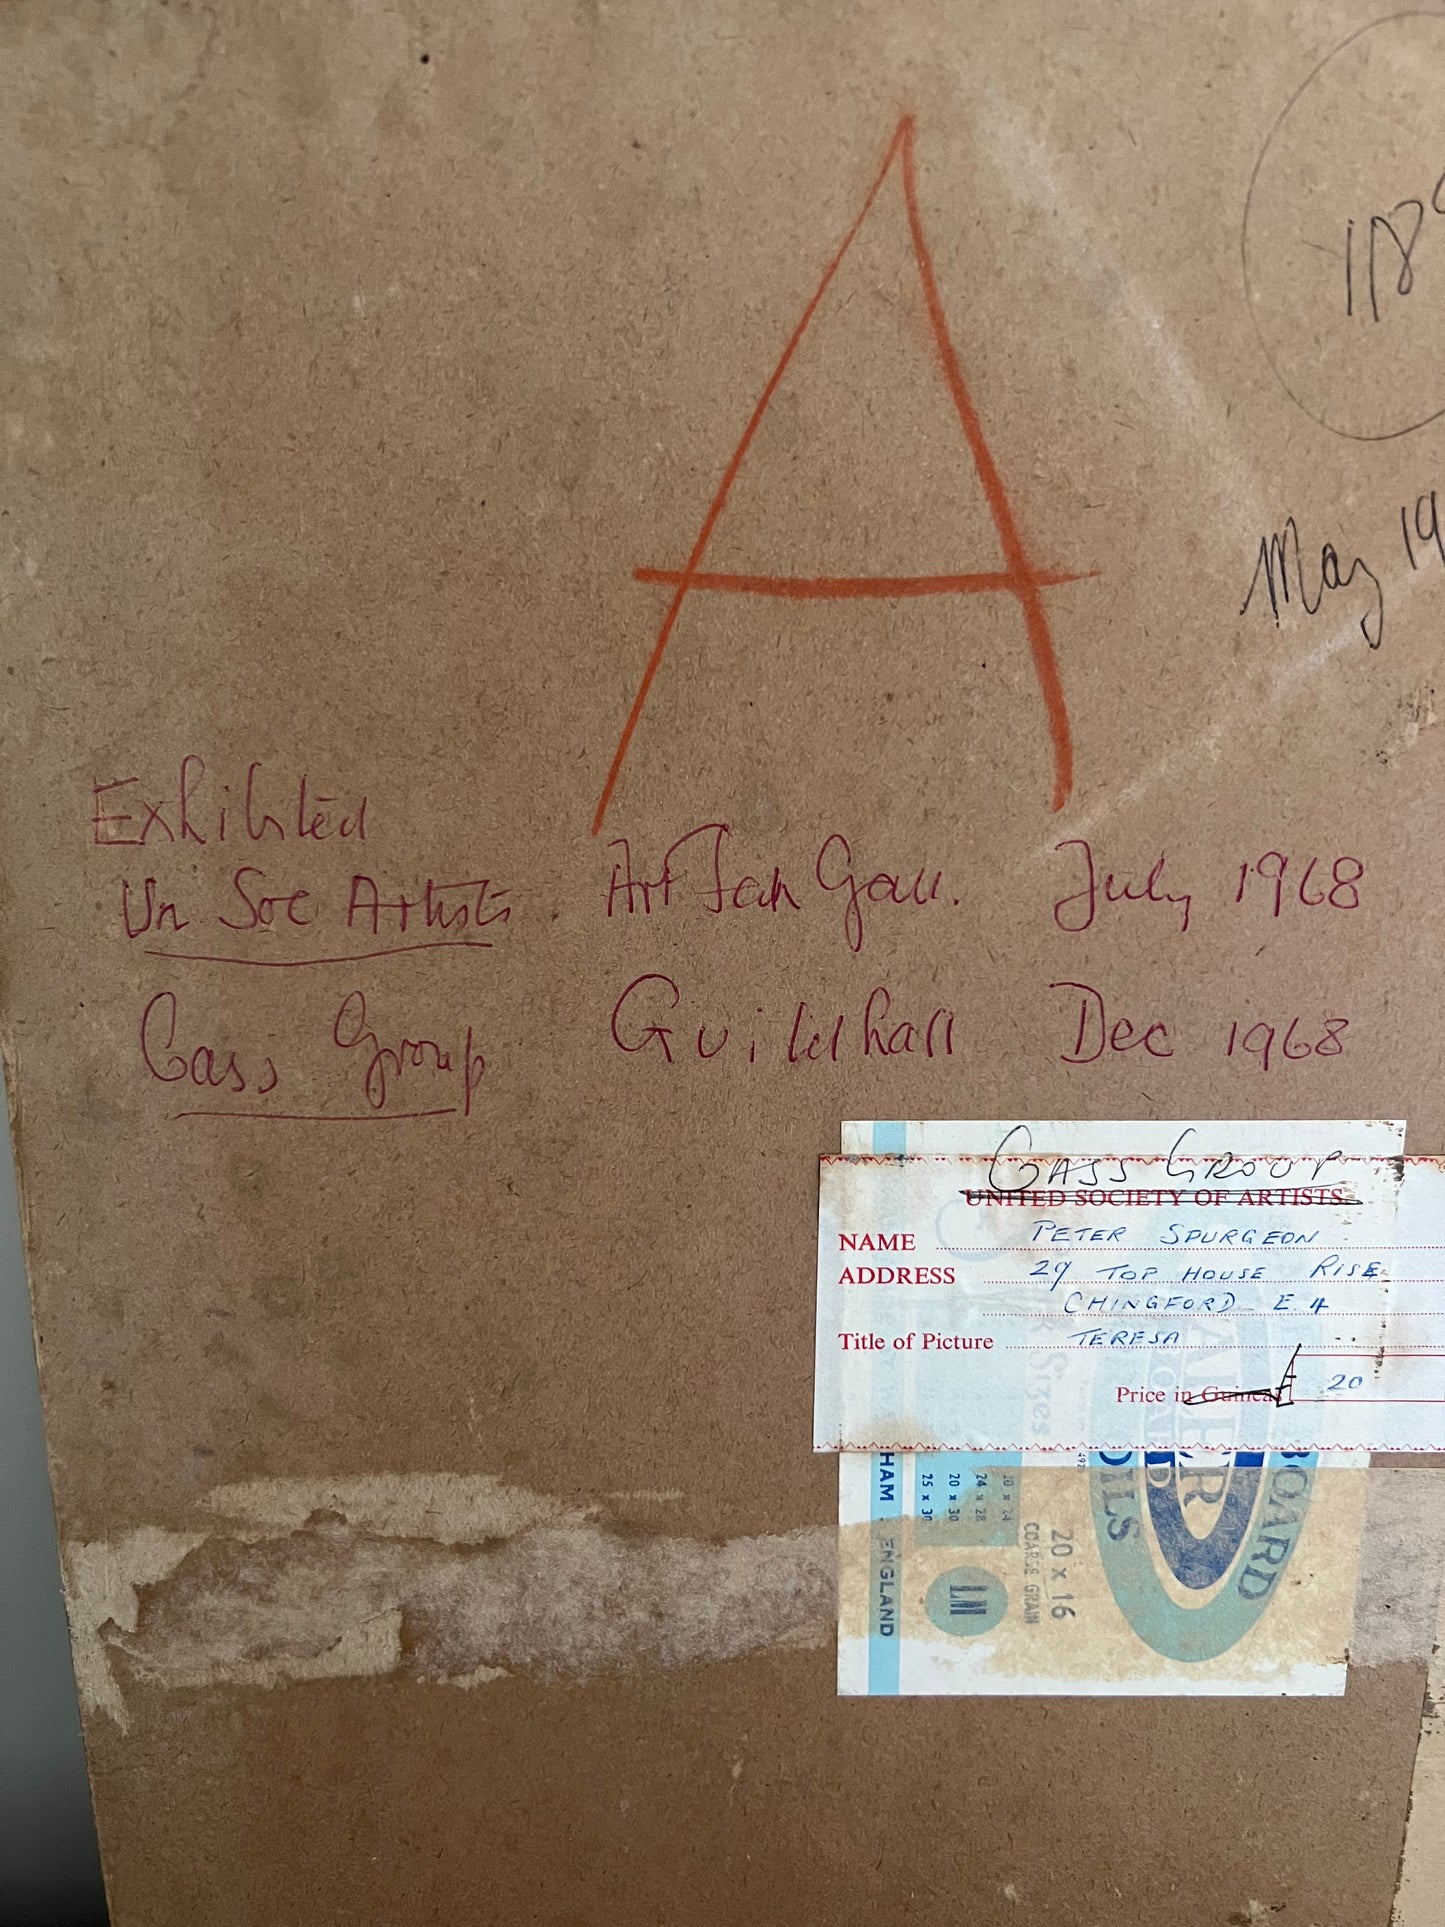 A
118
May 19
Exhibited
Un Soc Artists. Art Fed Gall. July 1968
Cass Group Guildhall Dec 1968
CASS GROUP
UNITED SOCIETY OF ARTISTS
NAME PETER SPURGEON
ADDRESS 29 TOP HOUSE RISE
CHINGFORD E.4
Title of Picture TERESA
Price in Guineas £ 20
HAM. ENGLAND
25 x 30
20 x 30
24 x 28
20 x 24
COARSE GRAIN
20 x 16
Sizes
OILS
BOARD
BOARD